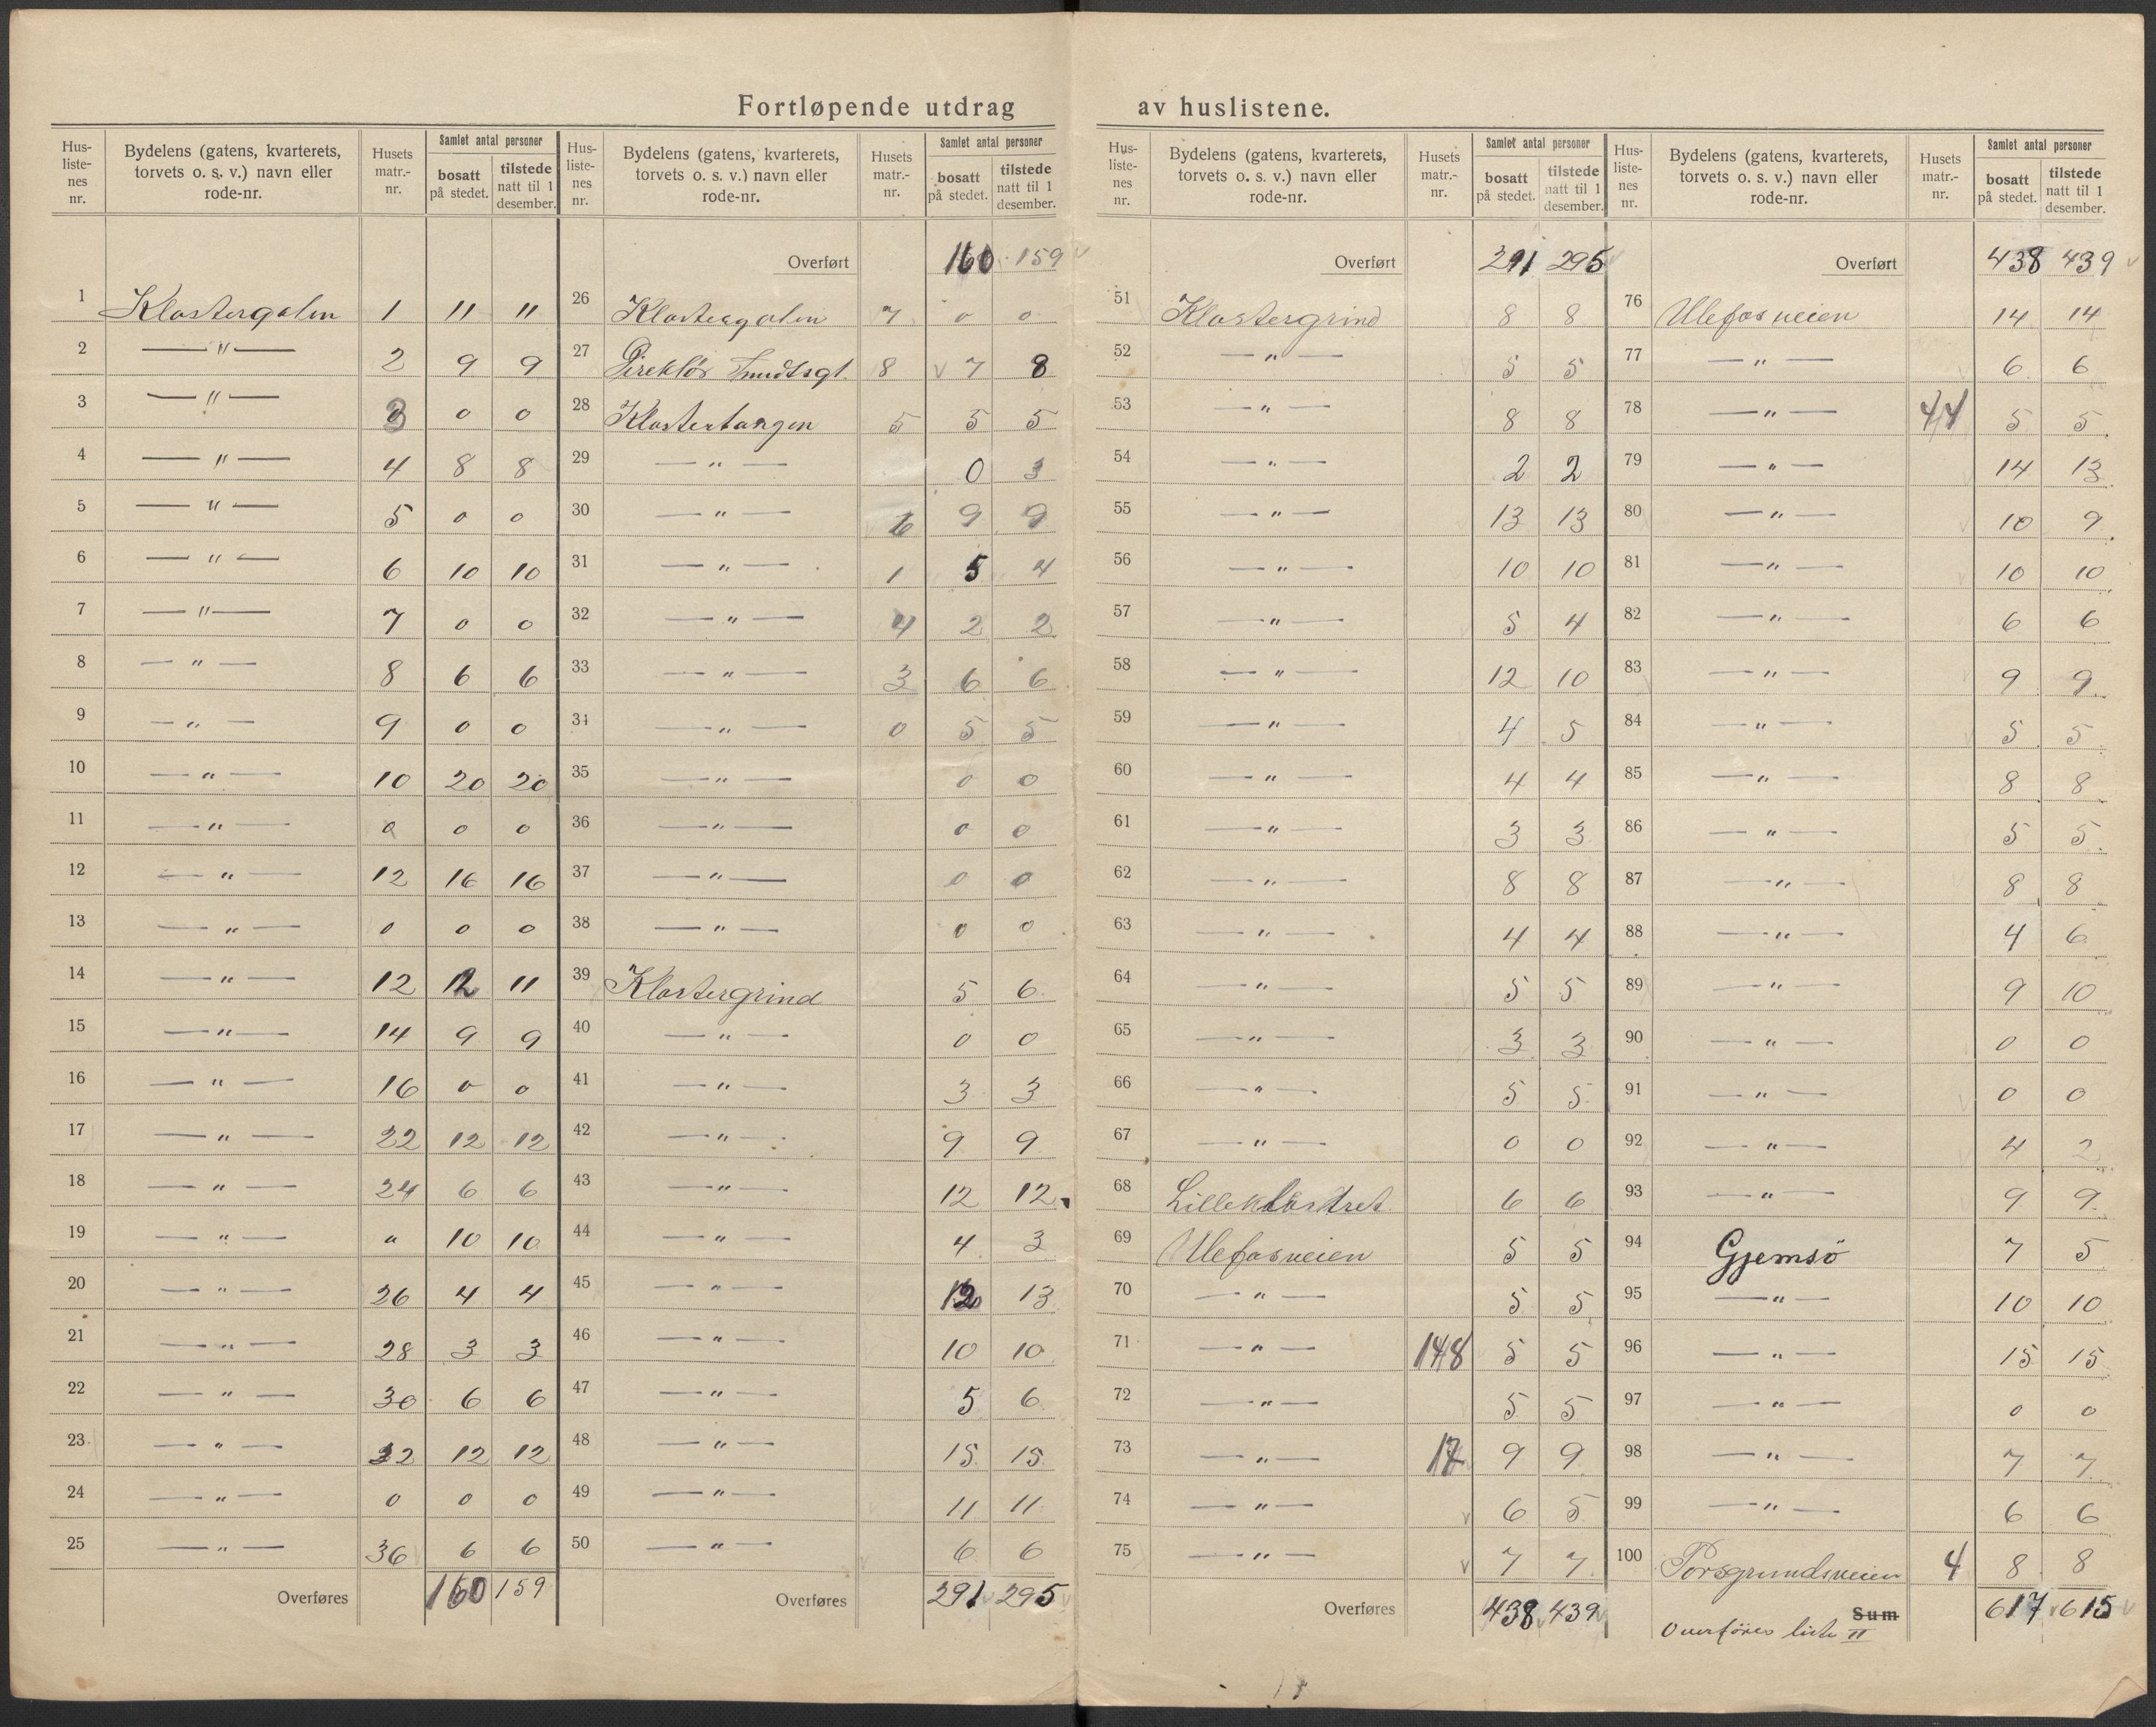 Fortløpende utdrag av huslistene.
Hus-liste-nes nr. | Bydelens (gatens, kvarterets, torvets o. s. v.) navn eller rode-nr. | Husets matr.-nr. | Samlet antal personer bosatt på stedet. | tilstede natt til 1 desember.
1 Klostergaten 1 11 11
2 —"— 2 9 9
3 —"— 3 0 0
4 —"— 4 8 8
5 —"— 5 0 0
6 —"— 6 10 10
7 —"— 7 0 0
8 —"— 8 6 6
9 —"— 9 0 0
10 —"— 10 20 20
11 —"— 0 0 0
12 —"— 12 16 16
13 —"— 0 0 0
14 —"— 12 12 11
15 —"— 14 9 9
16 —"— 16 0 0
17 —"— 22 12 12
18 —"— 24 6 6
19 —"— " 10 10
20 —"— 26 4 4
21 —"— 28 3 3
22 —"— 30 6 6
23 —"— 32 12 12
24 —"— 0 0 0
25 —"— 36 6 6
Overføres 160 159
Hus-liste-nes nr. | Bydelens (gatens, kvarterets, torvets o. s. v.) navn eller rode-nr. | Husets matr.-nr. | Samlet antal personer bosatt på stedet. | tilstede natt til 1 desember.
Overført 160 159
26 Klostergaten 7 0 0
27 Direktör Smidtsgt. 8 7 8
28 Klostertangen 5 5 5
29 —"— 0 3
30 —"— 6 9 9
31 —"— 1 5 4
32 —"— 4 2 2
33 —"— 3 6 6
34 —"— 0 5 5
35 —"— 0 0
36 —"— 0 0
37 —"— 0 0
38 —"— 0 0
39 Klostergrind 5 6
40 —"— 0 0
41 —"— 3 3
42 —"— 9 9
43 —"— 12 12
44 —"— 4 3
45 —"— 12 13
46 —"— 10 10
47 —"— 5 6
48 —"— 15 15
49 —"— 11 11
50 —"— 6 6
Overføres 291 295
Hus-liste-nes nr. | Bydelens (gatens, kvarterets, torvets o. s. v.) navn eller rode-nr. | Husets matr.-nr. | Samlet antal personer bosatt på stedet. | tilstede natt til 1 desember.
Overført 291 295
51 Klostergrind 8 8
52 —"— 5 5
53 —"— 8 8
54 —"— 2 2
55 —"— 13 13
56 —"— 10 10
57 —"— 5 4
58 —"— 12 10
59 —"— 4 5
60 —"— 4 4
61 —"— 3 3
62 —"— 8 8
63 —"— 4 4
64 —"— 5 5
65 —"— 3 3
66 —"— 5 5
67 —"— 0 0
68 Lilleklostret 6 6
69 Ulefosveien 5 5
70 —"— 5 5
71 —"— 148 5 5
72 —"— 5 5
73 —"— 17 9 9
74 —"— 6 5
75 —"— 7 7
Overføres 438 439
Hus-liste-nes nr. | Bydelens (gatens, kvarterets, torvets o. s. v.) navn eller rode-nr. | Husets matr.-nr. | Samlet antal personer bosatt på stedet. | tilstede natt til 1 desember.
Overført 438 439
76 Ulefosveien 14 14
77 —"— 6 6
78 —"— 44 5 5
79 —"— 14 13
80 —"— 10 9
81 —"— 10 10
82 —"— 6 6
83 —"— 9 9
84 —"— 5 5
85 —"— 8 8
86 —"— 5 5
87 —"— 8 8
88 —"— 4 6
89 —"— 9 10
90 —"— 0 0
91 —"— 0 0
92 —"— 4 2
93 —"— 9 9
94 Gjemsö 7 5
95 —"— 10 10
96 —"— 15 15
97 —"— 0 0
98 —"— 7 7
99 —"— 6 6
100 Porsgrundsveien 4 8 8
Sum 617 615
Overföres liste II